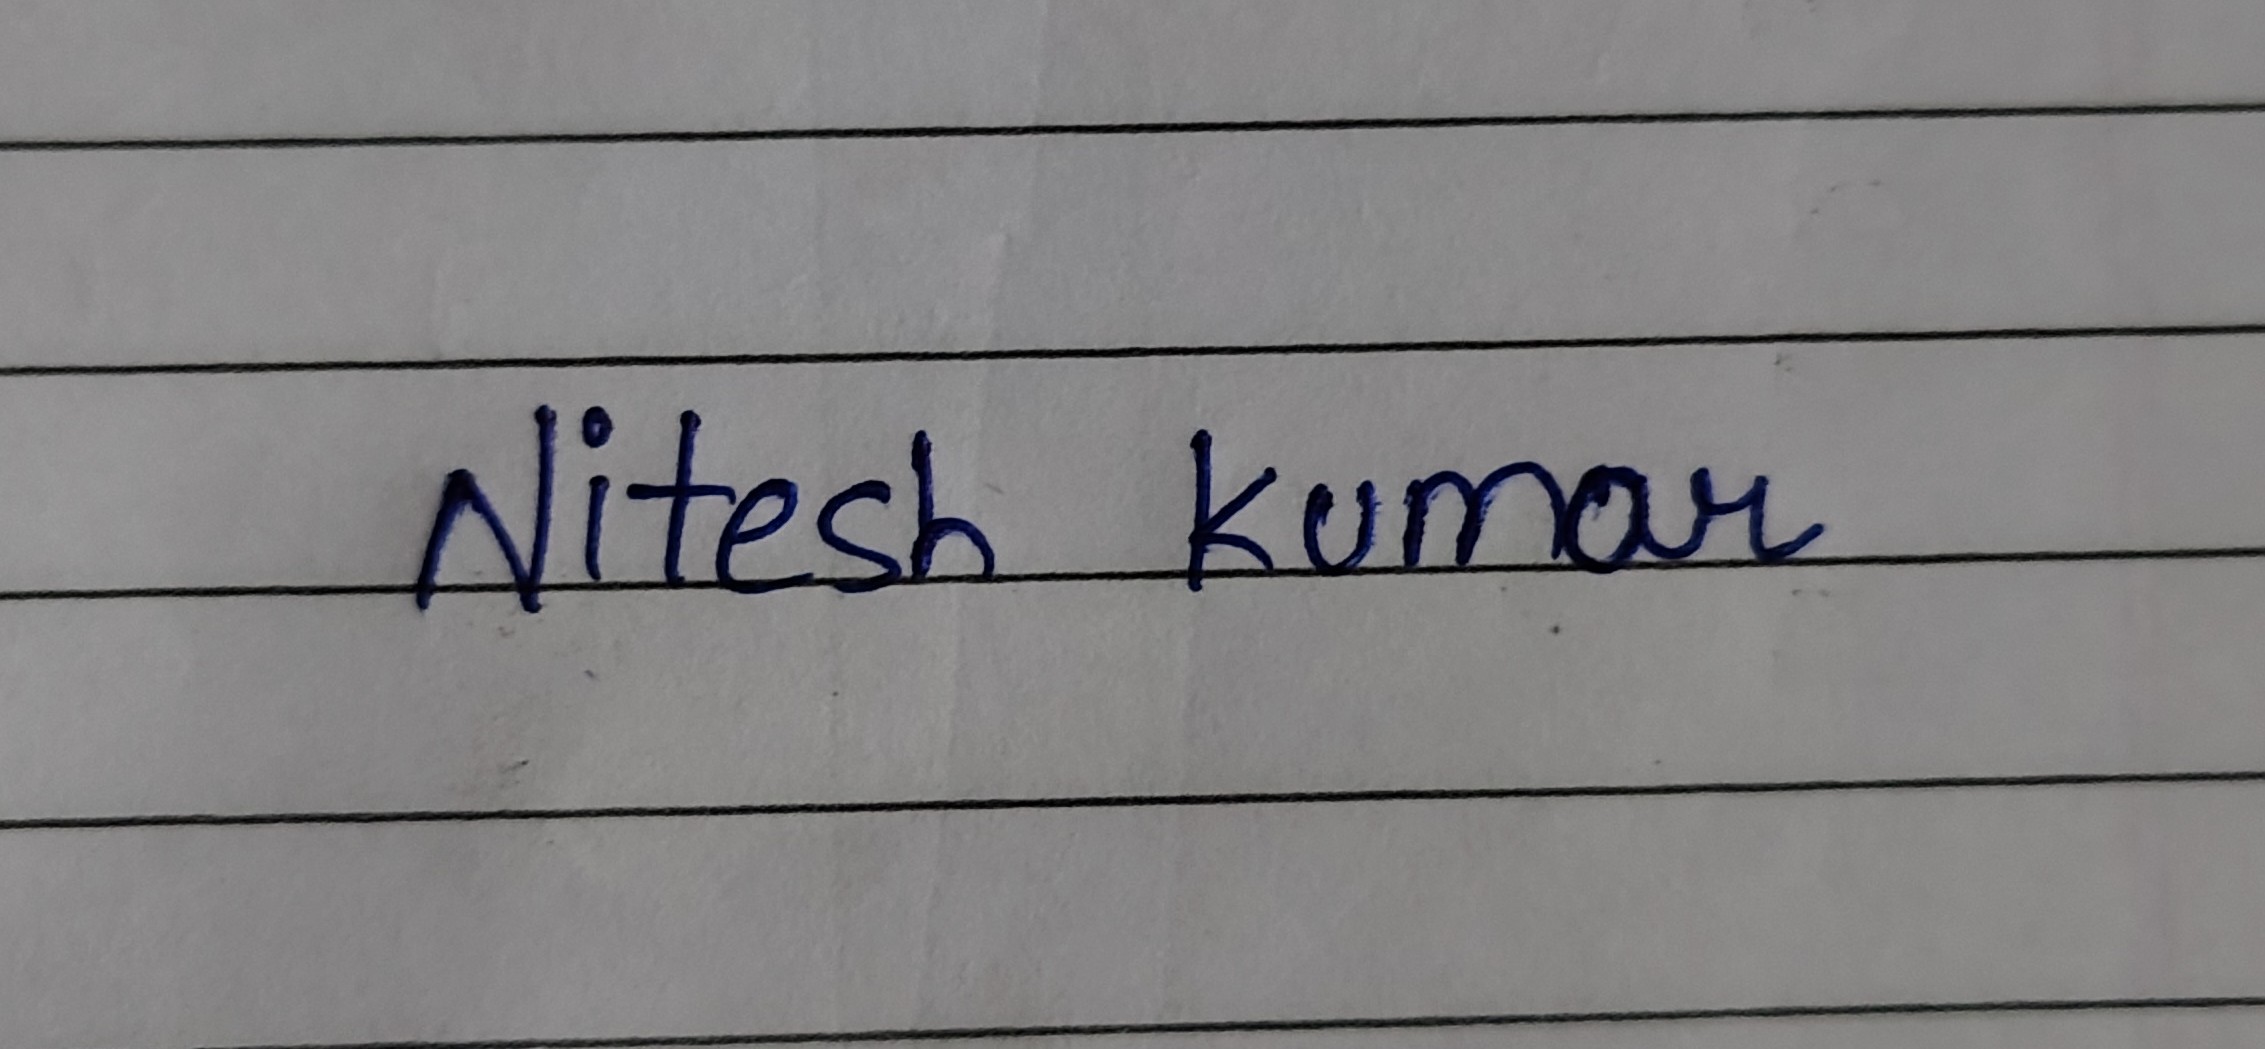 Nitesh kumar